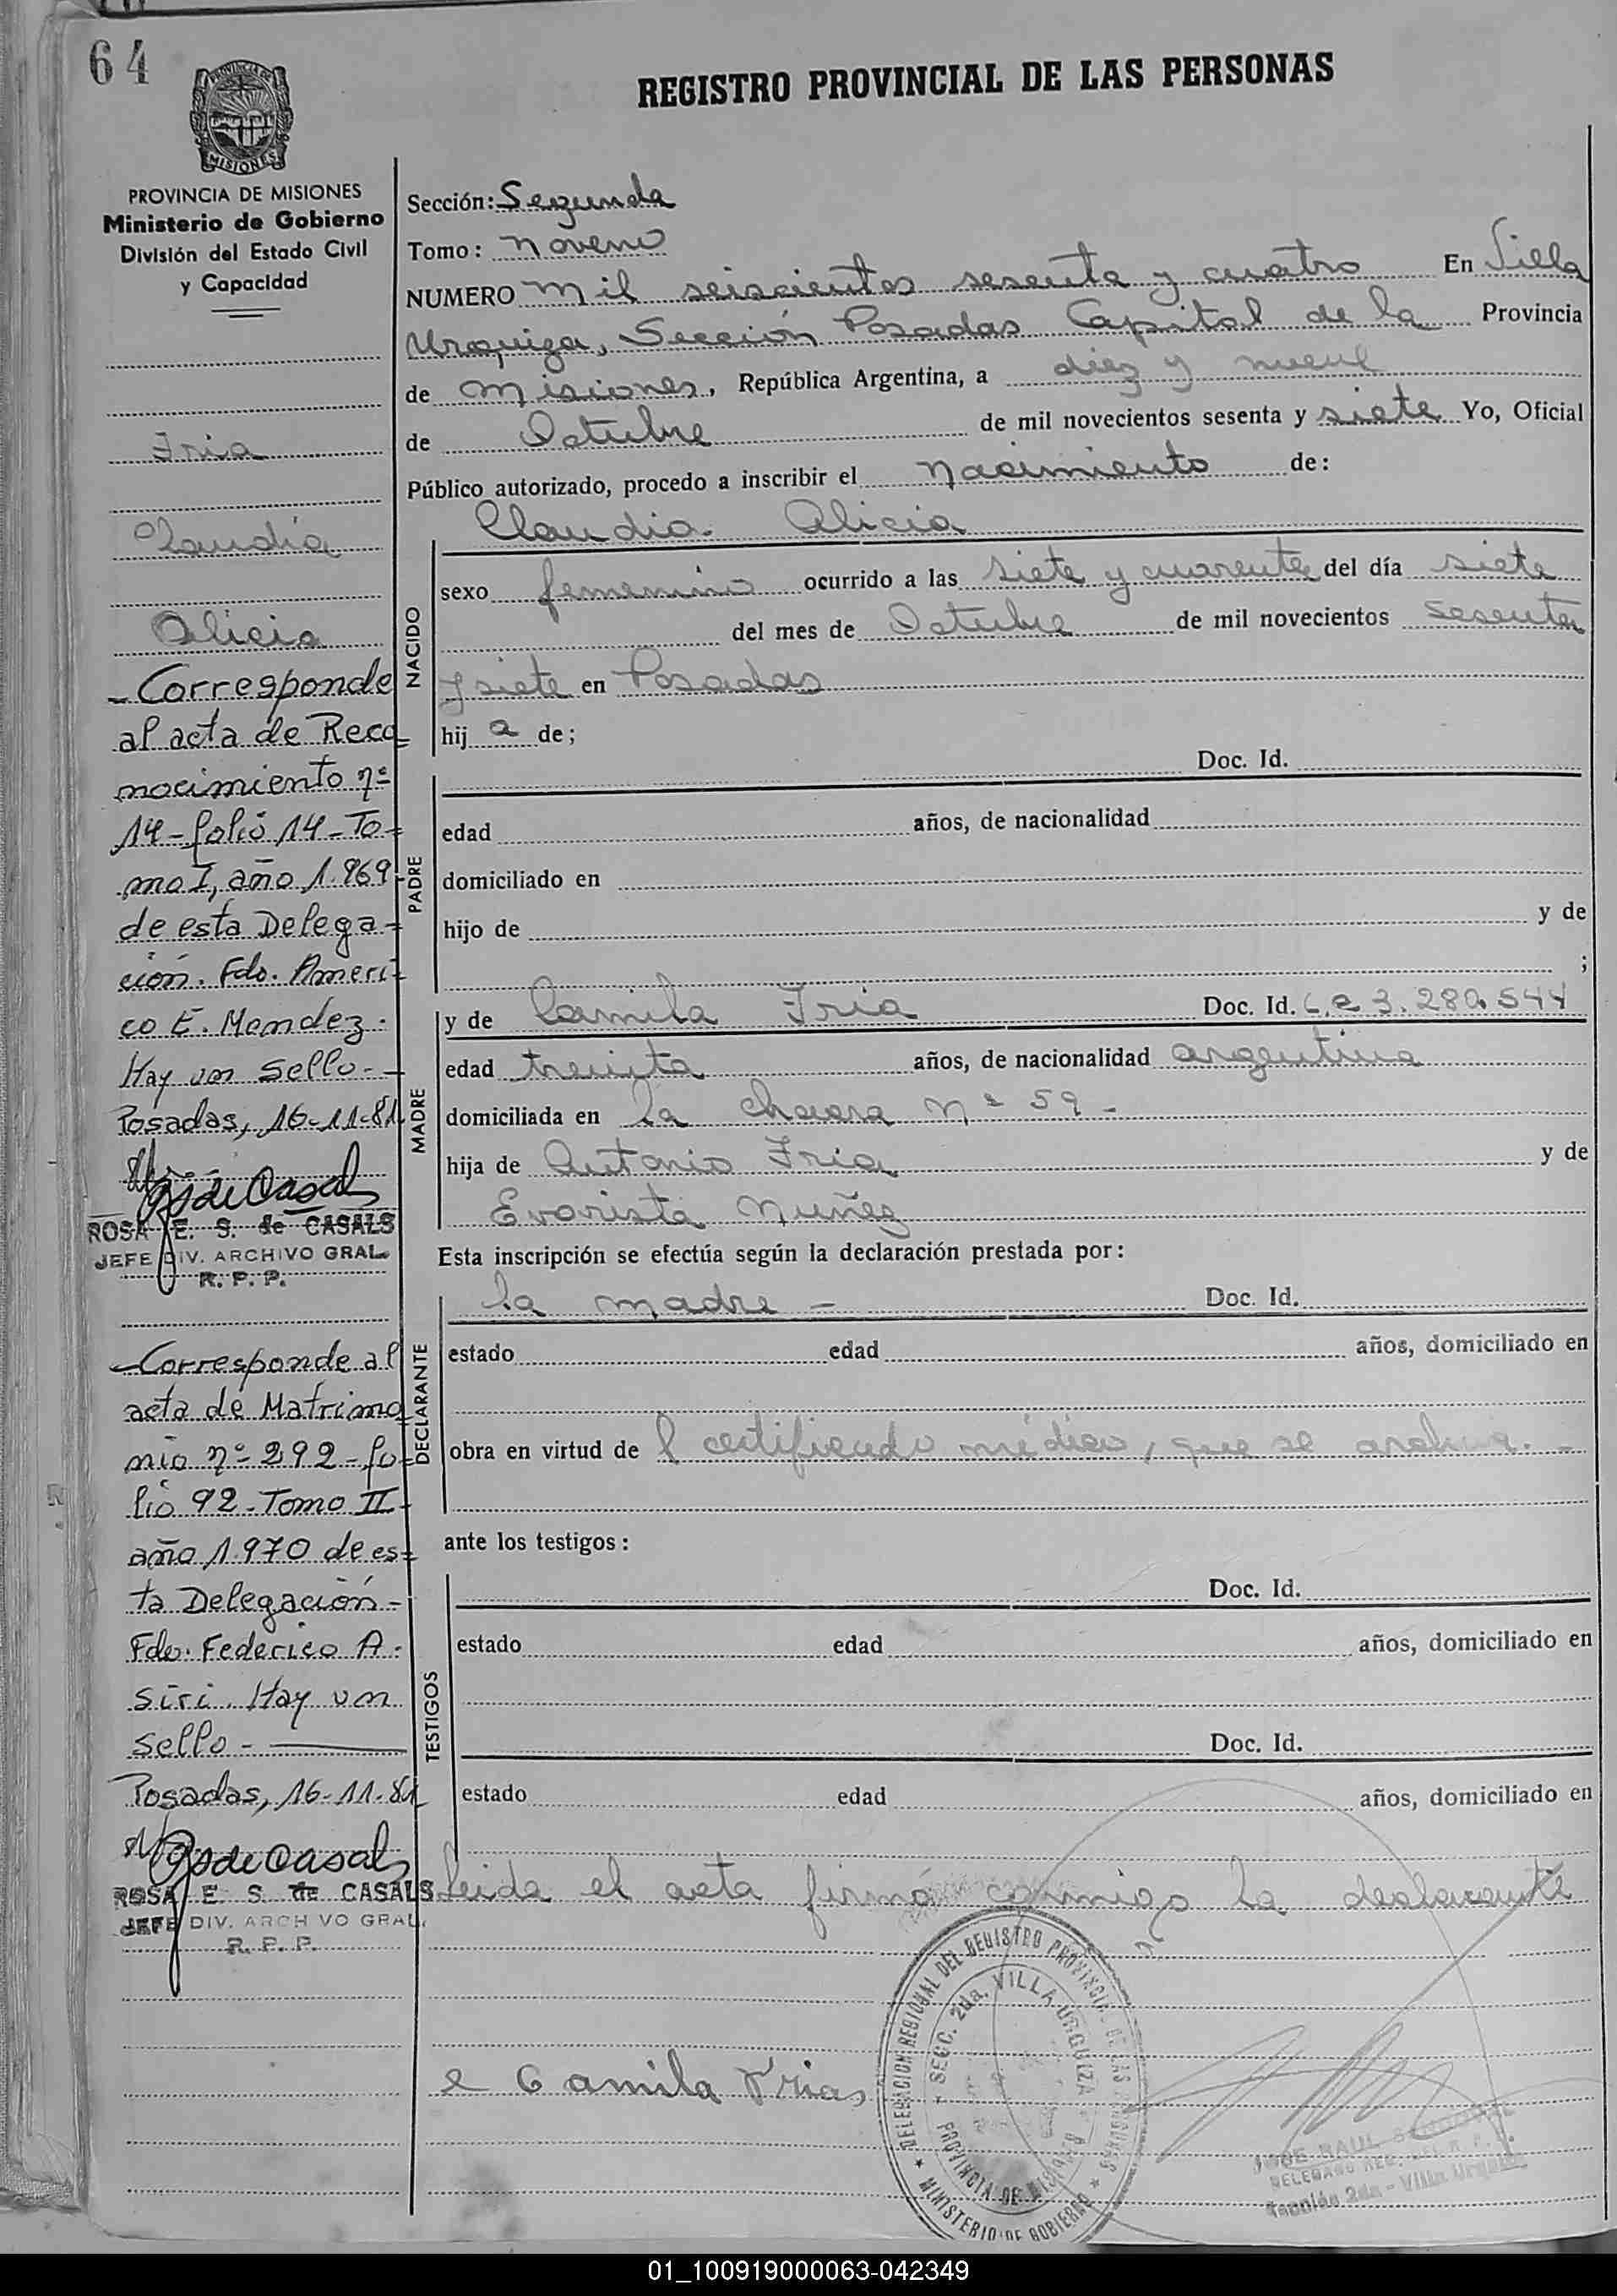 64
REGISTRO PROVINCIAL DE LAS PERSONAS
PROVINCIA DE
MISIONES
PROVINCIA DE MISIONES
Ministerio de Gobierno
División del Estado Civil
y Capacidad
Fria
Claudia
Alicia
- Corresponde
al acta de Reco
nocimiento nº
14 - folio 14 - To-
mo I, año 1.969-
de esta Delega-
ción. Fdo. Améri-
co E. Mendez.
Hay un sello.-
Posadas, 16-11-81
ROSA E. S. de CASALS
JEFE DIV. ARCHIVO GRAL.
R. P. P.
- Corresponde al
acta de Matrimo
nio nº 292 - fo-
lio 92 - Tomo II -
año 1.970 de es-
ta Delegación -
Fdo. Federico A.
Siri. Hay un
sello -
Posadas, 16-11-81
ROSA E. S. de CASALS
JEFE DIV. ARCHIVO GRAL.
R. P. P.
Sección: Segunda
Tomo: Noveno
NUMERO mil seiscientos sesenta y cuatro En Villa
Urquiza, Sección Posadas Capital de la Provincia
de Misiones, República Argentina, a diez y nueve
de Octubre de mil novecientos sesenta y siete Yo, Oficial
Público autorizado, procedo a inscribir el Nacimiento de:
Claudia Alicia
NACIDO
sexo femenino ocurrido a las siete y cuarenta del día siete
del mes de Octubre de mil novecientos sesenta
y siete en Posadas
hij a de;
Doc. Id.
PADRE
edad años, de nacionalidad
domiciliado en
hijo de y de
;
MADRE
y de Camila Fria Doc. Id. L.C 3.280.544
edad treinta años, de nacionalidad argentina
domiciliada en la chacra Nº 59 -
hija de Antonio Fria y de
Evarista Nuñez
Esta inscripción se efectúa según la declaración prestada por:
DECLARANTE
la madre - Doc. Id.
estado edad años, domiciliado en
obra en virtud de l certificado médico, que se archiva. -
ante los testigos:
TESTIGOS
Doc. Id.
estado edad años, domiciliado en
Doc. Id.
estado edad años, domiciliado en
Leida el acta firmó conmigo la declarante
Camila Frias
DELEGACION REGIONAL DEL REGISTRO PROVINCIAL DE LAS PERSONAS
SECC. 2da. VILLA URQUIZA
PROVINCIA DE MISIONES
MINISTERIO DE GOBIERNO
JOSE RAUL
DELEGADO REG. DEL R. P.
Sección 2da - Villa Urquiza
01_100919000063-042349